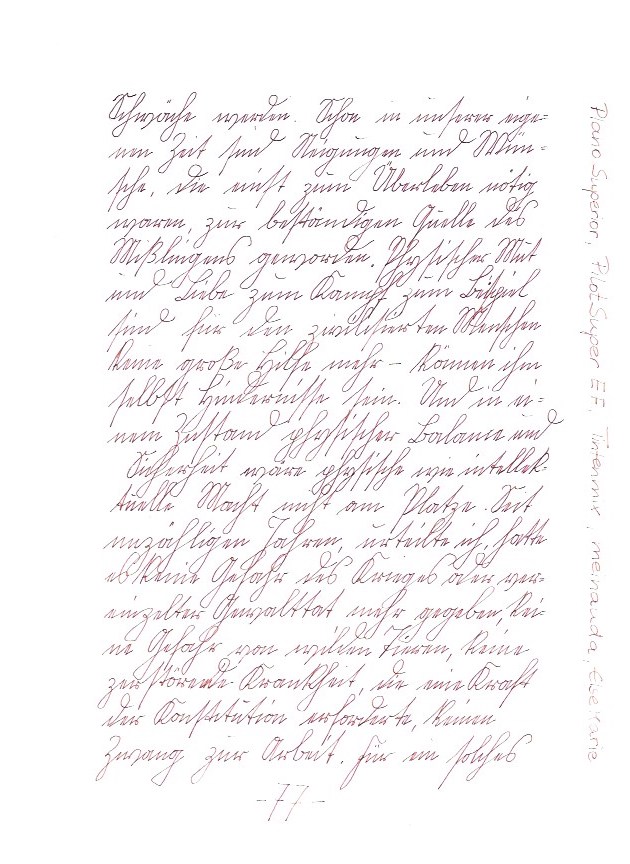 Schwäche werden. Schon in unserer eige=
nen Zeit sind Neigungen und Wün=
sche, die einst zum Überleben nötig
waren, zur beständigen Quelle des
Mißlingens geworden. Physischer Mut
und Liebe zum Kampf zum Beispiel
sind für den zivilisierten Menschen
keine große Hilfe mehr – können ihm
selbst Hindernisse sein. Und in ei=
nem Zustand physischer Balance und
Sicherheit wäre physische wie intellek=
tuelle Macht nicht am Platze. Seit
unzähligen Jahren, urteilte ich, hatte
es keine Gefahr des Krieges oder ver=
einzelter Gewalttat mehr gegeben, kei=
ne Gefahr von wilden Tieren, keine
zerstörende Krankheit, die eine Kraft
der Konstitution erforderte, keinen
Zwang zur Arbeit. Für ein solches
-77-
Plano Superior, Pilot Super EF, Tintenmix, meinauda, Else Marie